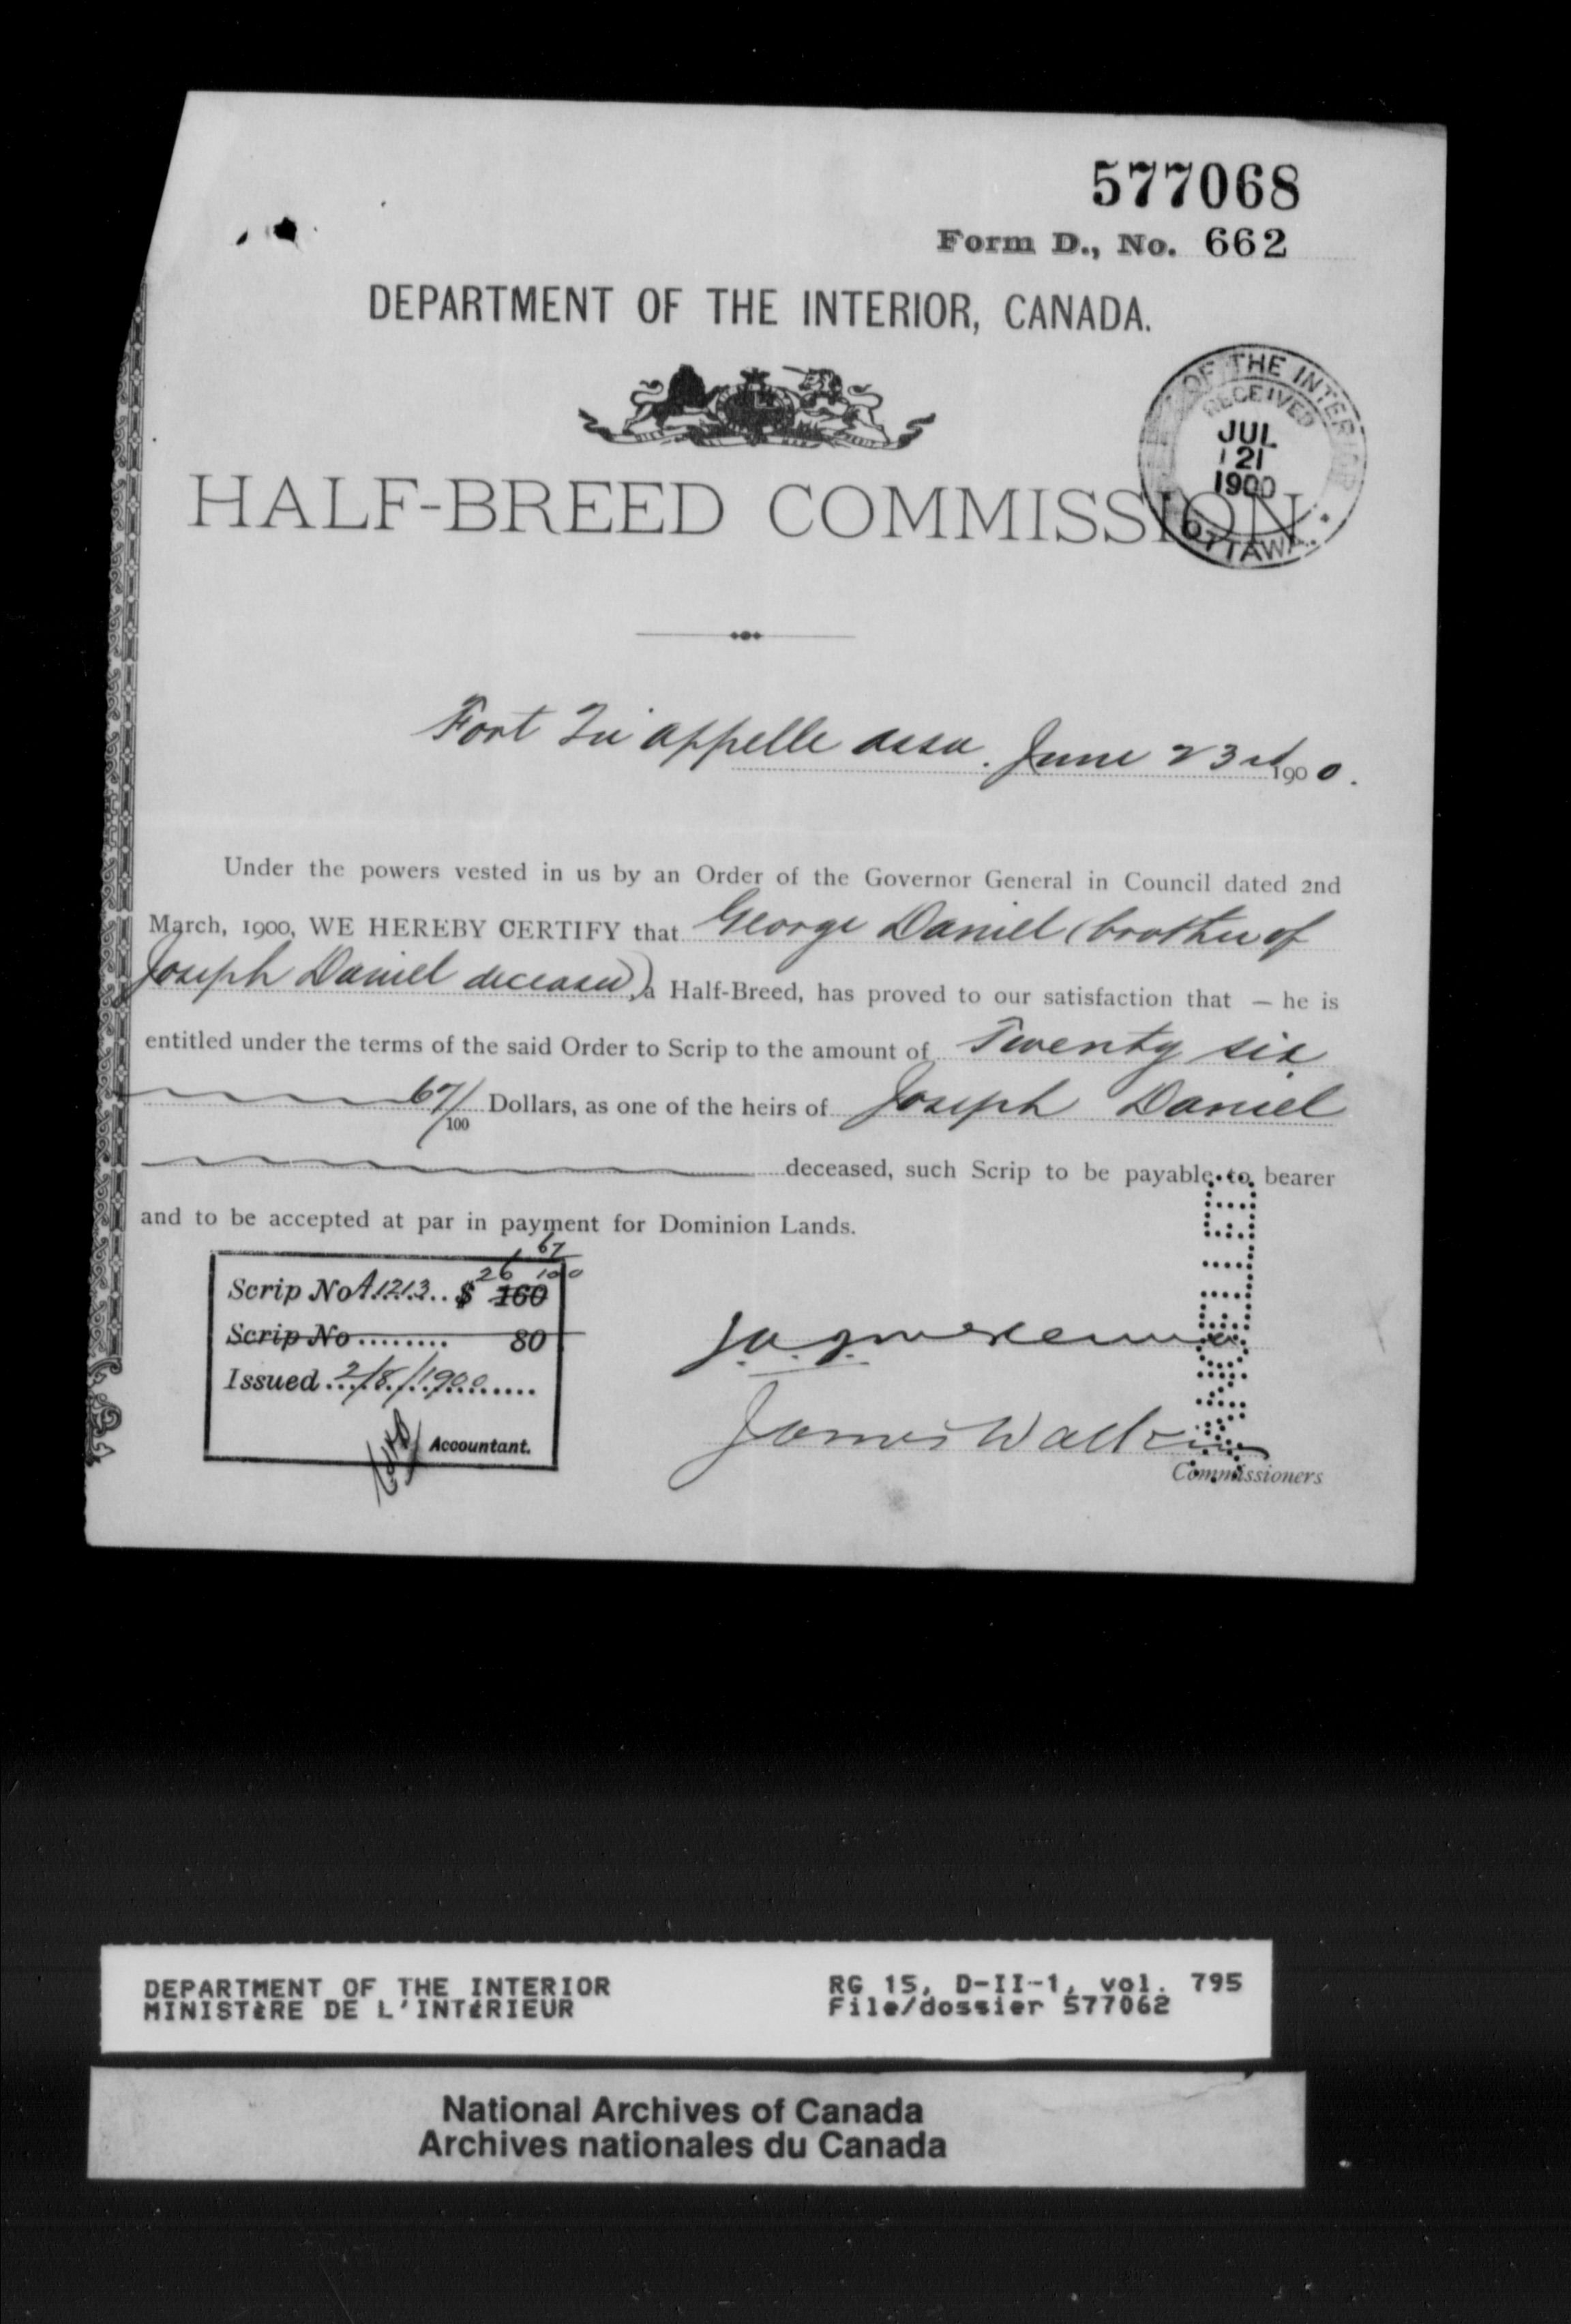 577068
Form D., No. 662
DEPARTMENT OF THE INTERIOR, CANADA.
OF THE INTERIOR
RECEIVED
JUL
21
1900
OTTAWA.
HALF-BREED COMMISSION
Fort Qu'appelle assa. June 23rd 1900.
Under the powers vested in us by an Order of the Governor General in Council dated 2nd
March, 1900, WE HEREBY CERTIFY that George Daniel (brother of
Joseph Daniel deceased), a Half-Breed, has proved to our satisfaction that — he is
entitled under the terms of the said Order to Scrip to the amount of Twenty six
67/100 Dollars, as one of the heirs of Joseph Daniel
deceased, such Scrip to be payable to bearer
and to be accepted at par in payment for Dominion Lands.
26 67/100
Scrip No A.1213.. $ 160
Scrip No ......... 80
Issued 2/8/1900
Accountant.
James Walker
Commissioners
DEPARTMENT OF THE INTERIOR
MINISTÈRE DE L'INTÉRIEUR
RG 15, D-II-1, vol. 795
File/dossier 577062
National Archives of Canada
Archives nationales du Canada